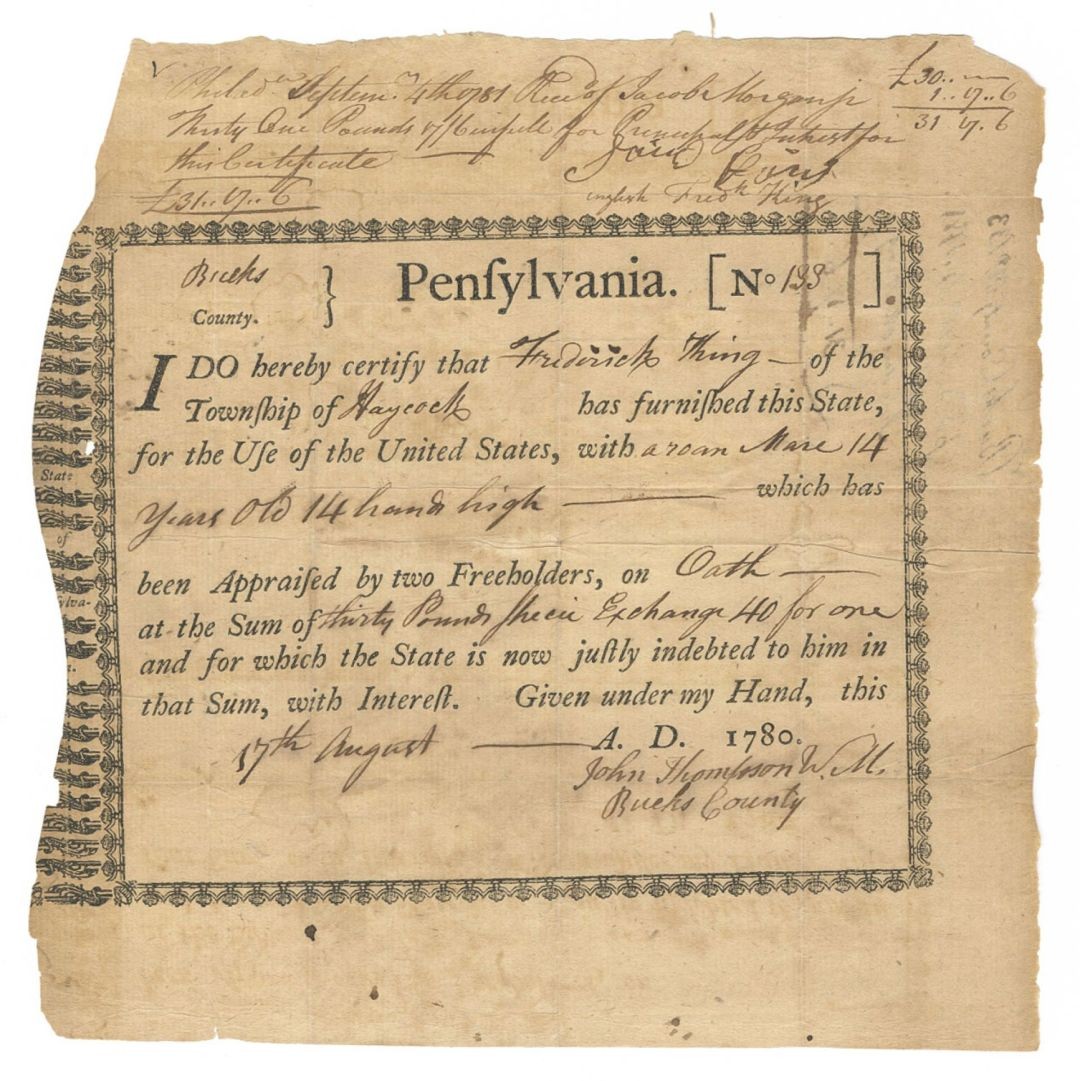 Septemr 4th 1781 Recd of Jacob Morgan jr £30..
1..17..6
Thirty One Pounds 17/6 in full for Principal & Interest for 31 17.6
this Certificate
£31..17..6
english Fredk King
Bucks
County.
} Penſylvania. [No 133 ].
I DO hereby certify that Frederick King — of the
Townſhip of Haycock has furniſhed this State,
for the Uſe of the United States, with a roan Mare 14
Years Old 14 hands high — which has
been Appraiſed by two Freeholders, on Oath —
at the Sum of thirty Pounds specie Exchange 40 for one
and for which the State is now juſtly indebted to him in
that Sum, with Intereſt. Given under my Hand, this
17th August — A. D. 1780.
John Thompson W. M.
Bucks County
State
of
ſylva-